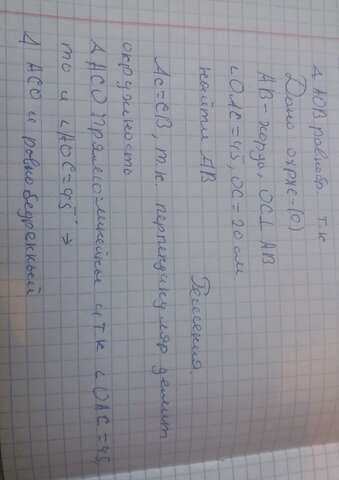 Δ AOB равноб. т.к
Дано окрж-(O)
AB-хорда, OC⊥AB
∠OAC=45, OC=20 см
найти AB
Решения.
AC=CB, т.к перпендикуляр делит
окружность
Δ ACO прямоугольный и т.к ∠OAC=45,
то и ∠AOC=45° →
Δ ACO и равнобедренный